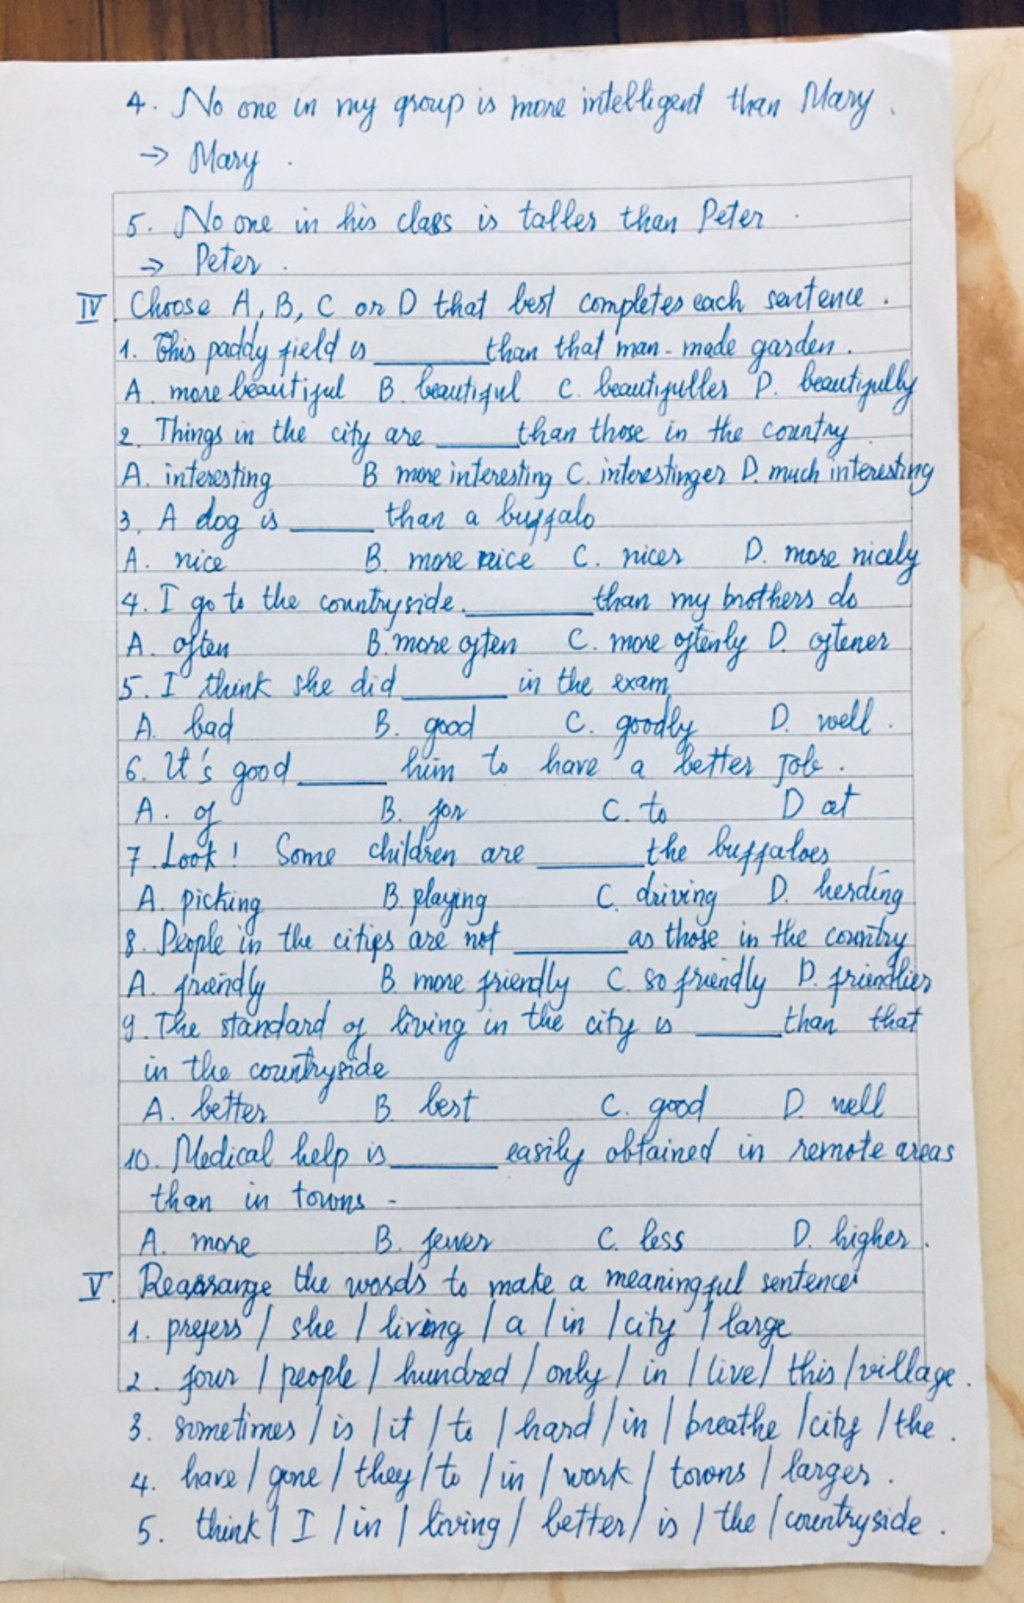 4. No one in my group is more intelligent than Mary.
→ Mary.
5. No one in his class is taller than Peter.
→ Peter.
IV. Choose A, B, C or D that best completes each sentence.
1. This paddy field is ______ than that man-made garden.
A. more beautiful B. beautiful C. beautifuller D. beautifully
2. Things in the city are ______ than those in the country.
A. interesting B more interesting C. interestinger D. much interesting
3. A dog is ______ than a buffalo
A. nice B. more nice C. nicer D. more nicely
4. I go to the countryside ______ than my brothers do
A. often B. more often C. more oftenly D. oftener
5. I think she did ______ in the exam
A. bad B. good C. goodly D. well.
6. It's good ______ him to have a better job.
A. of B. for C. to D at
7. Look! Some children are ______ the buffaloes
A. picking B. playing C. driving D. herding
8. People in the cities are not ______ as those in the country
A. friendly B. more friendly C. so friendly D. friendlier
9. The standard of living in the city is ______ than that
in the countryside
A. better B. best C. good D. well
10. Medical help is ______ easily obtained in remote areas
than in towns -
A. more B. fewer C. less D. higher.
V. Rearrange the words to make a meaningful sentence
1. prefers / she / living / a / in / city / large
2. four / people / hundred / only / in / live / this / village.
3. sometimes / is / it / to / hard / in / breathe / city / the.
4. have / gone / they / to / in / work / towns / larger.
5. think / I / in / living / better / is / the / countryside.